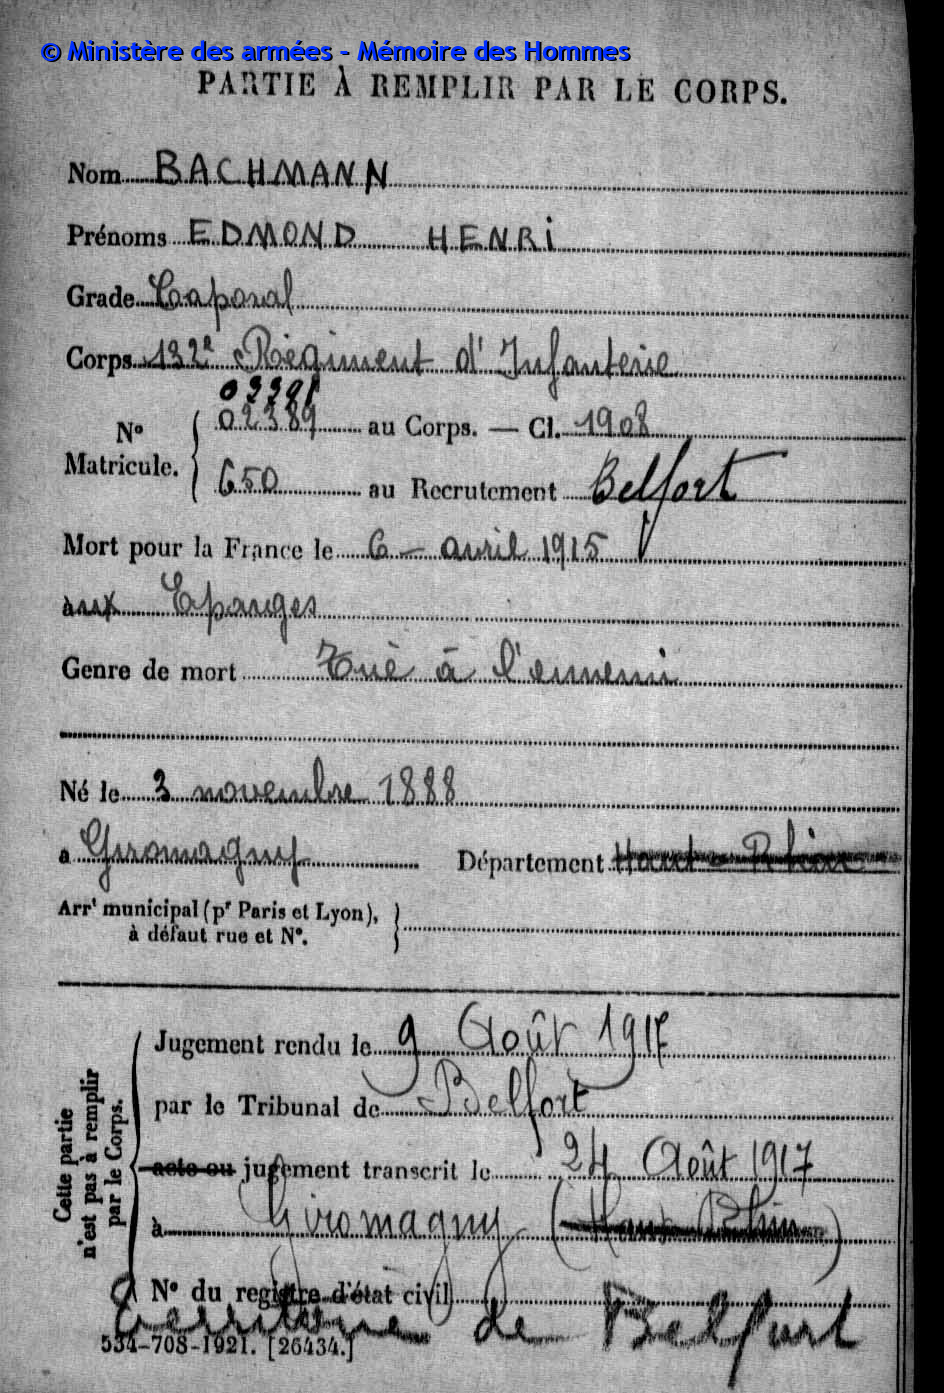 © Ministère des armées - Mémoire des Hommes
PARTIE À REMPLIR PAR LE CORPS.
Nom BACHMANN
Prénoms EDMOND HENRI
Grade Caporal
Corps 132e Régiment d'Infanterie
02291
N° Matricule. 02389 au Corps. — Cl. 1908
650 au Recrutement Belfort
Mort pour la France le 6 - avril 1915
aux Eparges
Genre de mort Tué à l'ennemi
Né le 3 novembre 1888
a Giromagny Département Haut-Rhin
Arrt municipal (pr Paris et Lyon),
à défaut rue et N°.
Cette partie n'est pas à remplir par le Corps.
Jugement rendu le 9 Août 1917
par le Tribunal de Belfort
acte ou jugement transcrit le 24 Août 1917
à Giromagny (Haut Rhin)
N° du registre d'état civil
Territoire de Belfort
534-708-1921. [26434.]